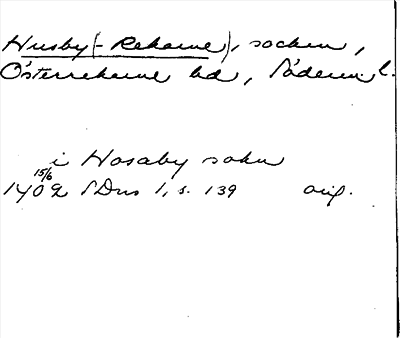 Husby (-Rekarne), socken,
Österrekarne hd, Söderm. l.
i Hosaby sokn
15/6
1402 SDns 1, s. 139 orig.